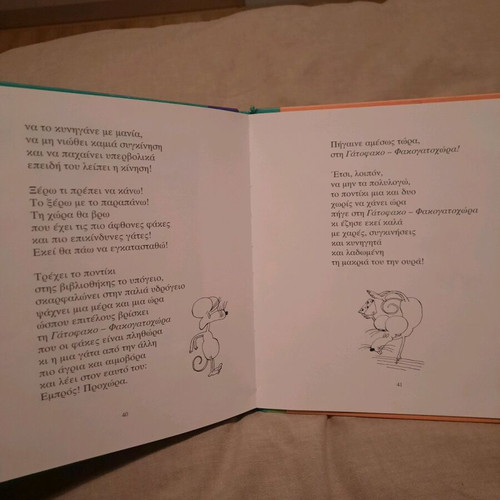 να το κυνηγάνε με μανία,
να μη νιώθει καμιά συγκίνηση
και να παχαίνει υπερβολικά
επειδή του λείπει η κίνηση!
Ξέρω τι πρέπει να κάνω!
Το ξέρω με το παραπάνω!
Τη χώρα θα βρω
που έχει τις πιο άφθονες φάκες
και πιο επικίνδυνες γάτες!
Εκεί θα πάω να εγκατασταθώ!
Τρέχει το ποντίκι
στης βιβλιοθήκης το υπόγειο,
σκαρφαλώνει στην παλιά υδρόγειο
ψάχνει μια μέρα και μια ώρα
ώσπου επιτέλους βρίσκει
τη Γάτοφακο – Φακογατοχώρα
που οι φάκες είναι πληθώρα
κι η μια γάτα από την άλλη
πιο άγρια και αιμοβόρα
και λέει στον εαυτό του:
Εμπρός! Προχώρα.
40
Πήγαινε αμέσως τώρα,
στη Γάτοφακο – Φακογατοχώρα!
Έτσι, λοιπόν,
να μην τα πολυλογώ,
το ποντίκι μια και δυο
χωρίς να χάνει ώρα
πήγε στη Γάτοφακο – Φακογατοχώρα
κι έζησε εκεί καλά
με χαρές, συγκινήσεις
και κυνηγητά
και λαδωμένη
τη μακριά του την ουρά!
41